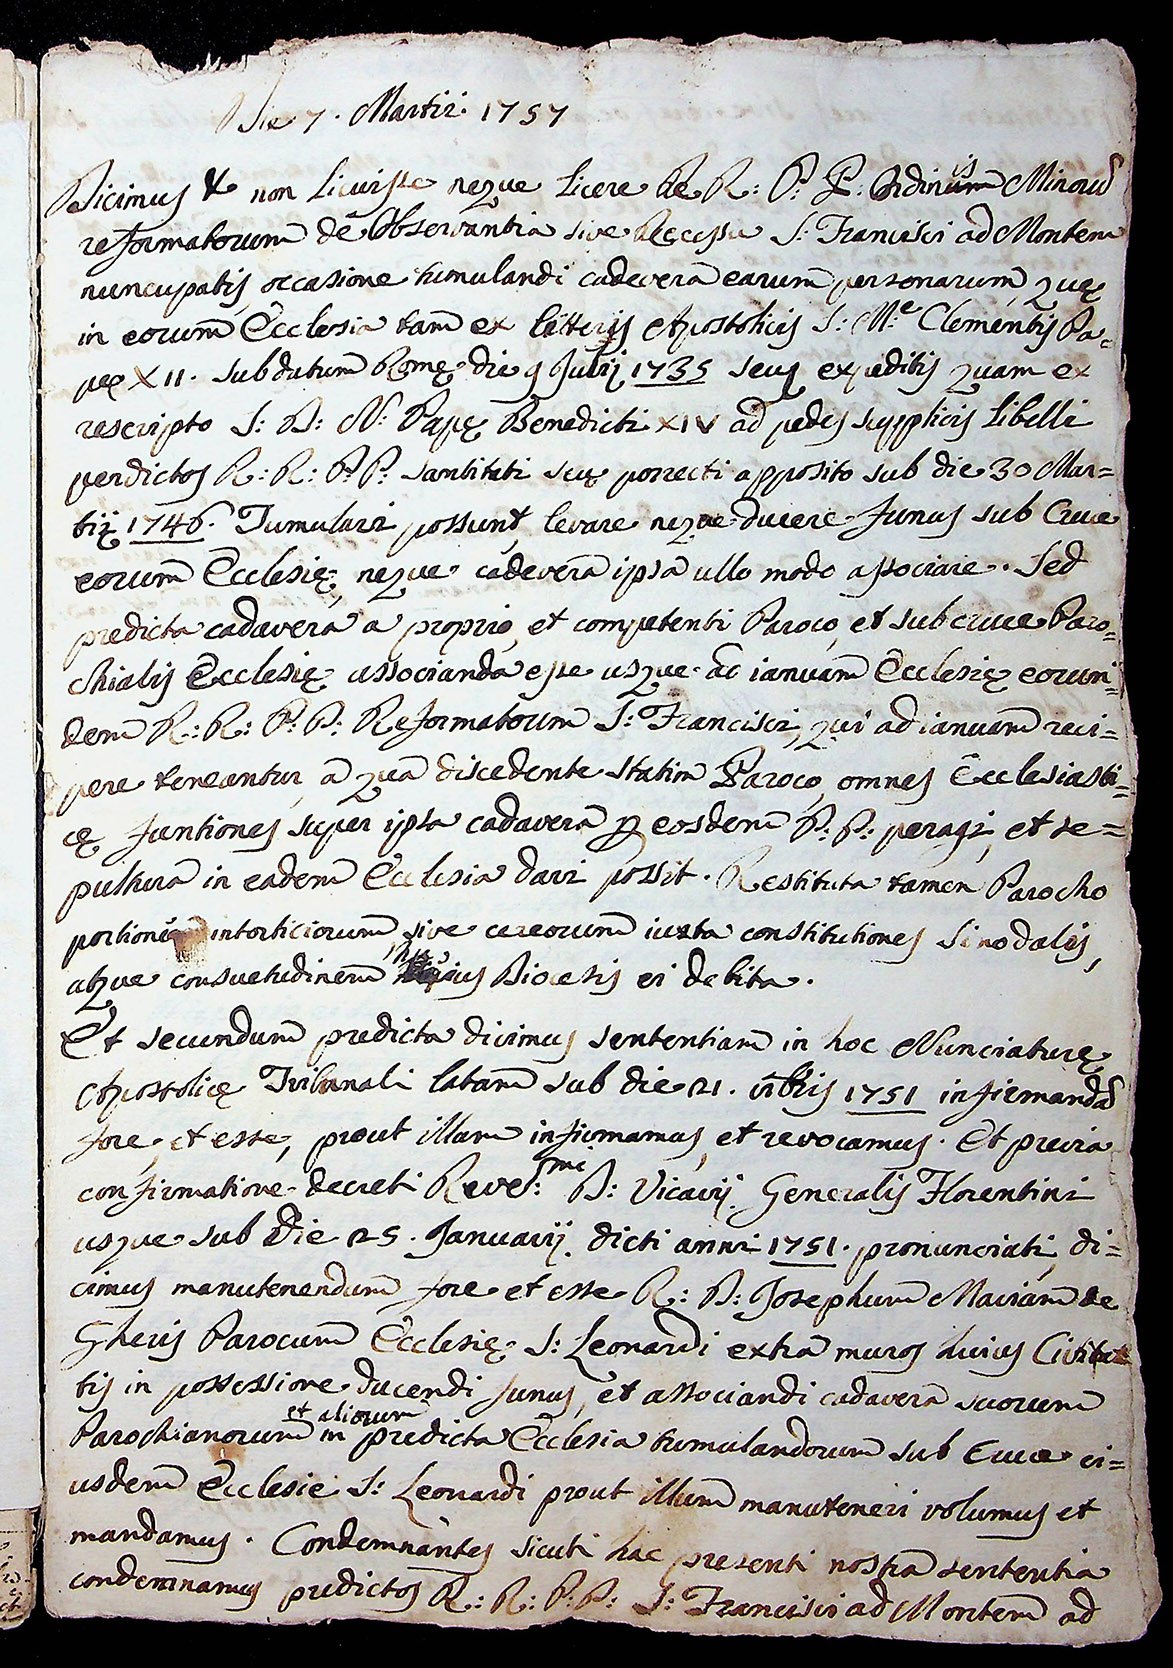 Die 7. Martii. 1757
Dicimus &c non licuisse neque licere RR: R: P: P: Ordinis Minorū
reformatorum de Observantia sive Recessu S: Francisci ad Montem
nuncupatis, occasione tumulandi cadavera earum personarum, quę
in eorum Ecclesia tam ex litteris Apostolicis S: M:e Clementis Pa=
pę XII. sub datum Romę die 9 Julij 1735 seu expeditis quam ex
rescripto S: D: N: Papę Benedicti XIV ad pedes supplicis libelli
per dictos R: R: P: P. santitati suę porrecti apposito sub die 30 Mar=
tij 1746. Tumulari possunt, levare neque ducere funus sub Cruce
eorum Ecclesię, neque cadavera ipsa ullo modo associare. Sed
predicta cadavera a proprio, et competenti Paroco, et sub cruce Paro=
chialis Ecclesię associanda esse usque ac ianuam Ecclesię eorun=
dem R: R: P: P: Reformatorum S: Francisci, qui ad ianuam reci=
pere teneantur, a qua discedente statim Paroco, omnes Ecclesiasti=
cę funtiones super ipsa cadavera p eosdem P: P: peragi, et se=
pultura in eadem Ecclesia dari possit. Restituta tamen Parocho
portione intorticiorum, sive cereorum iuxta constitutiones Sinodalis,
atque consuetudinem huius Diocesis ei debita.
Et secundum predicta dicimus sententiam in hoc Nunciaturę
Apostolicę Tribunali latam sub die 21. 1751 infirmandā
fore, et esse, prout illam infirmamus, et revocamus. Et previa
confirmatione decreti Reve:mi D: Vicarij Generalis Florentini
usque sub Die 25. Januarij dicti anni 1751. pronunciati, di=
cimus manutenendum fore et esse R: D: Josephum Mariam de
Gheris Parocum Ecclesię S: Leonardi extra muros huius Civita
tis in possessione ducendi funus, et associandi cadavera suorum
Parochianorum et aliorum in predicta Ecclesia tumulandorum sub Cruce ei=
usdem Ecclesie S: Leonardi prout illum manuteneri volumus et
mandamus. Condemnantes sicuti hac presenti nostra sententia
condemnamus predictos R: R: P: P: S: Francisci ad Montem ad